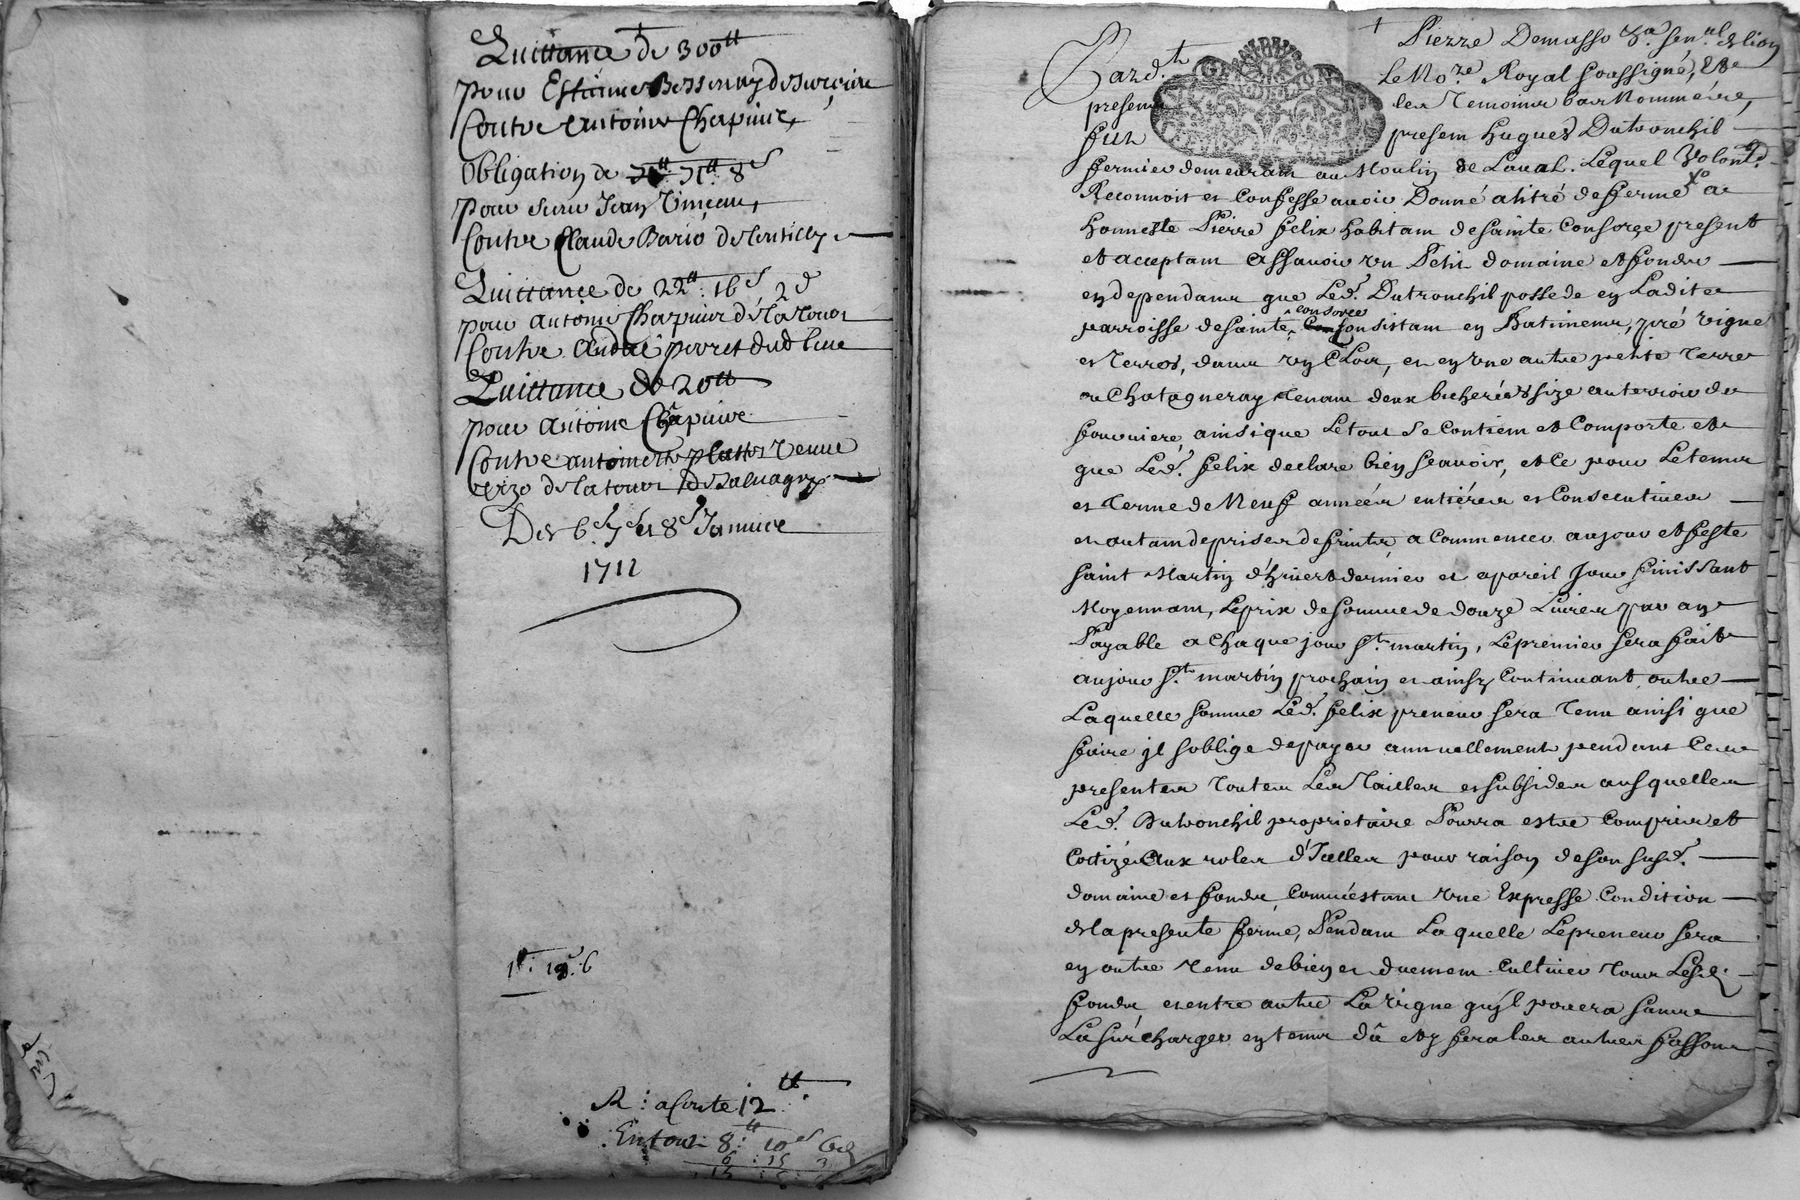 Quittance de 300tt
pour Estienne Bessenay de Surcieu
Contre Antoine Chapuis,
Obligation de 71tt 8s
pour sieur Jean
Contre Claude Bario de Lentilly
Quittance de 22tt 16s 2d
pour Antoine Chapuis de la tour
Contre André perret dud lieu
Quittance de 20tt
pour Antoine Chapuis
Contre antoinette platte veuve
de la tour de Salvagny
Des 6e 7e et 8e Janvier
1711
1tt 19s 6
R : a Conte 12tt
En tout 8tt 10s 6d
6 : 15
Pierre Demasso
Pard.t Le No.re Royal soussigné, Et
presens les Temoins bas Nommés,
fut present hugues Dutronchil
fermier demeurant au Moulin de Laval. Lequel Volont.t
Reconnoit et Confesse avoir Donné a titre de ferme a
honneste Pierre felix habitant de sainte Consorce present
et acceptant assavoir un Petit domaine et fonds
en dependants que Led. Dutronchil possede en Ladite
parroisse de Sainte consorce Consistant en Batiments, pré vigne
et Terres, dans un Clos, et en une autre petite Terre
et Chatagneray Tenant deux bicherées size au terroir de
ainsi que Le tout Se Contient et Comporte et
que Led. felix declare bien scavoir, et Ce pour Le tems
et Terme de Neuf années entieres et Consecutives
et autant de prises de fruits, a Commencer au jour et feste
saint Martin d'hiver dernier et a pareil Jour finissant
Moyennant, Le prix de somme de douze Livres par an
Payable a Chaque jour St. martin, Le premier sera fait
au jour St. martin prochain et ainsy Continuant, outre
Laquelle somme Led. felix preneur sera Tenu ainsi que
faire jl s'oblige de payer annuellement pendant Ces
presentes Toutes Les Tailles et subsides ausquelles
Led. Dutronchil proprietaire Pourra estre Compris et
Cottizé aux roles d'Tailles pour raison de son susd.
domaine et fonds, Comme estant une Expresse Condition
de la presente ferme, Pendant Laquelle Le preneur sera
en outre Tenu de bien et duement Cultiver Tous Lesd.
fonds, et entre autre La vigne qu'jl poüera sans
La surcharger en tems dû et y fera les autres fassons